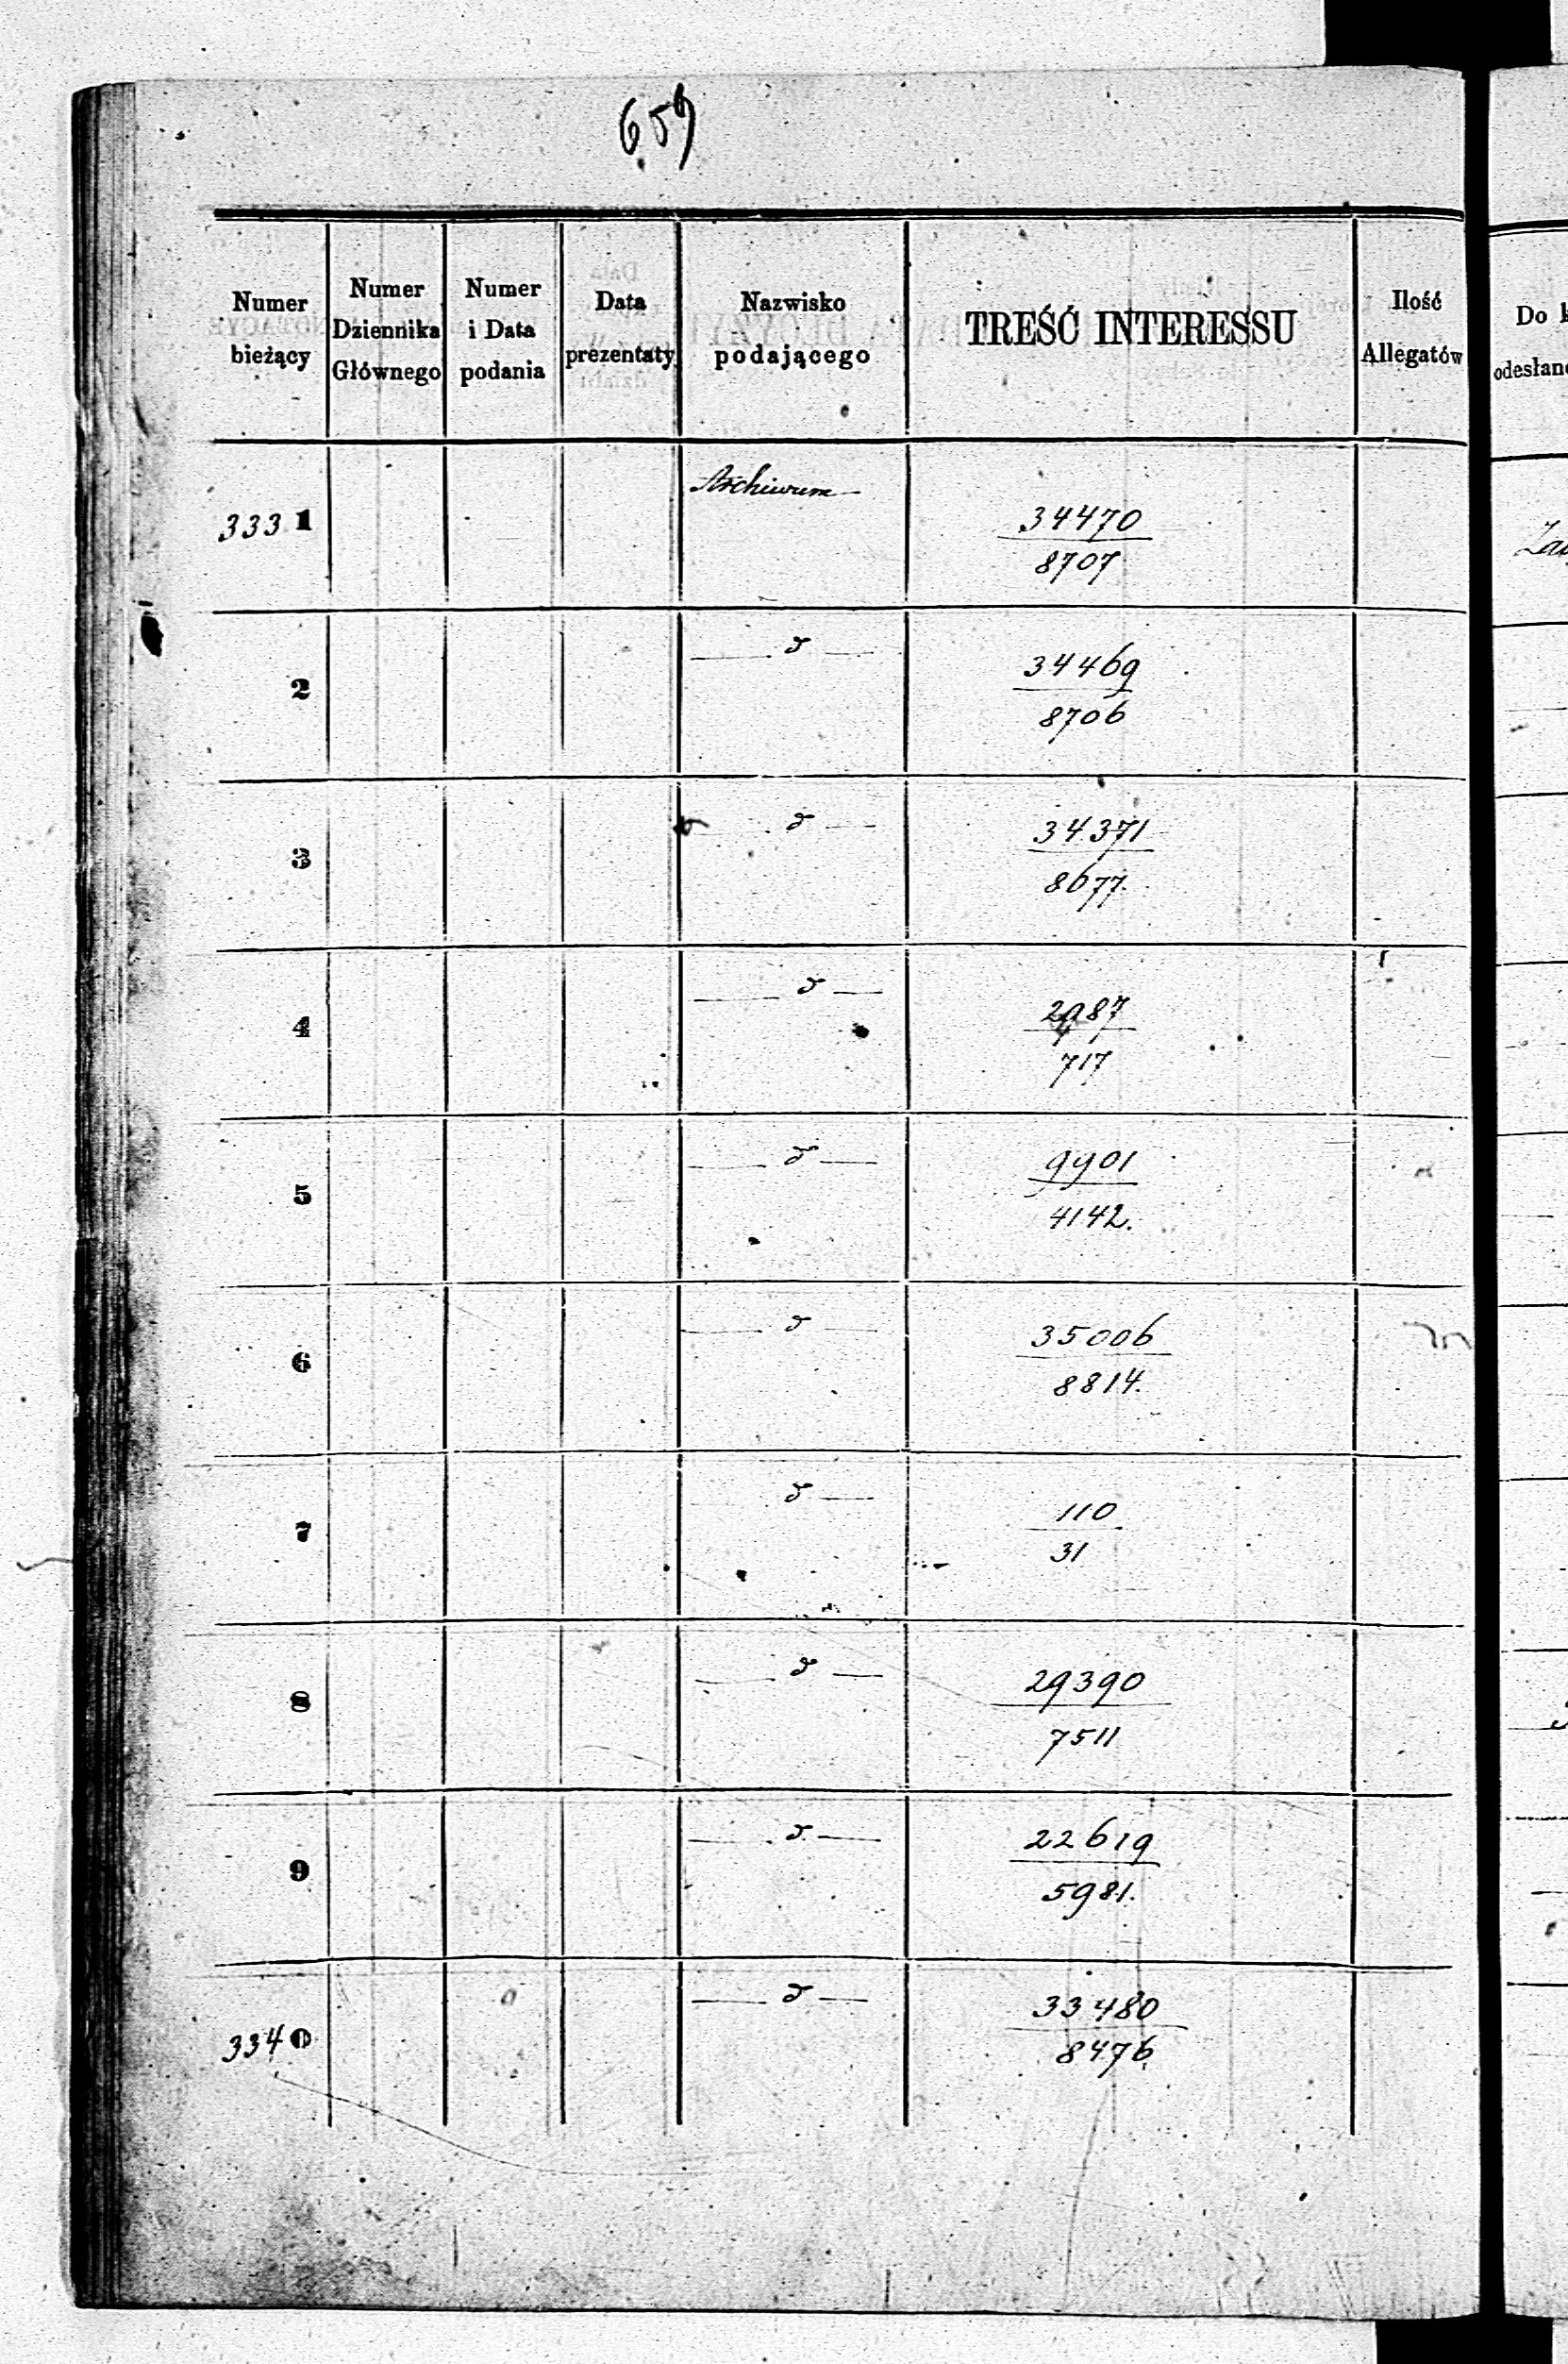 659
Numer bieżący
Numer Dziennika Głównego
Numer i Data podania
Data prezentaty
Nazwisko podającego
TREŚĆ INTERESSU
Ilość Allegatów
3331 Archiwum 34470
8707
2 — d — 34469
8706
3 — d — 34371
8677.
4 — d —
717
5 — d — 9901
4142.
6 — d — 35006
8814.
7 — d — 110
31
8 — d — 29390
7511
9 — d — 22619
5981.
3340 — d — 33480
8476